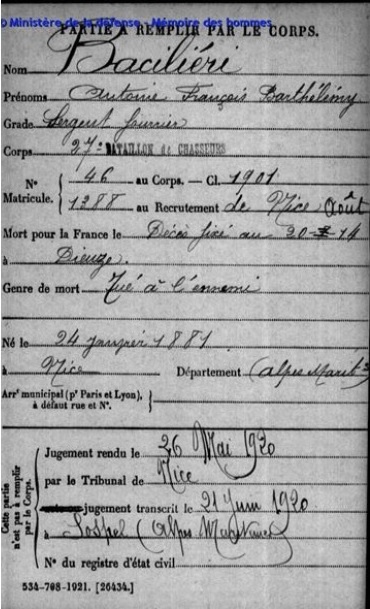 © Ministère de la défense - Mémoire des hommes
PARTIE À REMPLIR PAR LE CORPS.
Nom Baciliéri
Prénoms Antoine François Barthélémy
Grade Sergent fourrier
Corps 27e BATAILLON de CHASSEURS
N° Matricule. { 46 au Corps. — Cl. 1901
1288 au Recrutement de Nice Août
Mort pour la France le Décès fixé au 20 - 14
à Dieuze.
Genre de mort Tué à l'ennemi
Né le 24 janvier 1881
à Nice Département (Alpes Marit.es
Arrt municipal (pr Paris et Lyon), à défaut rue et N°.
Cette partie n'est pas à remplir par le Corps.
Jugement rendu le 26 Mai 1920
par le Tribunal de Nice
jugement transcrit le 21 Juin 1920
à Sospel (Alpes Maritimes)
N° du registre d'état civil
534-708-1921. [26434.]